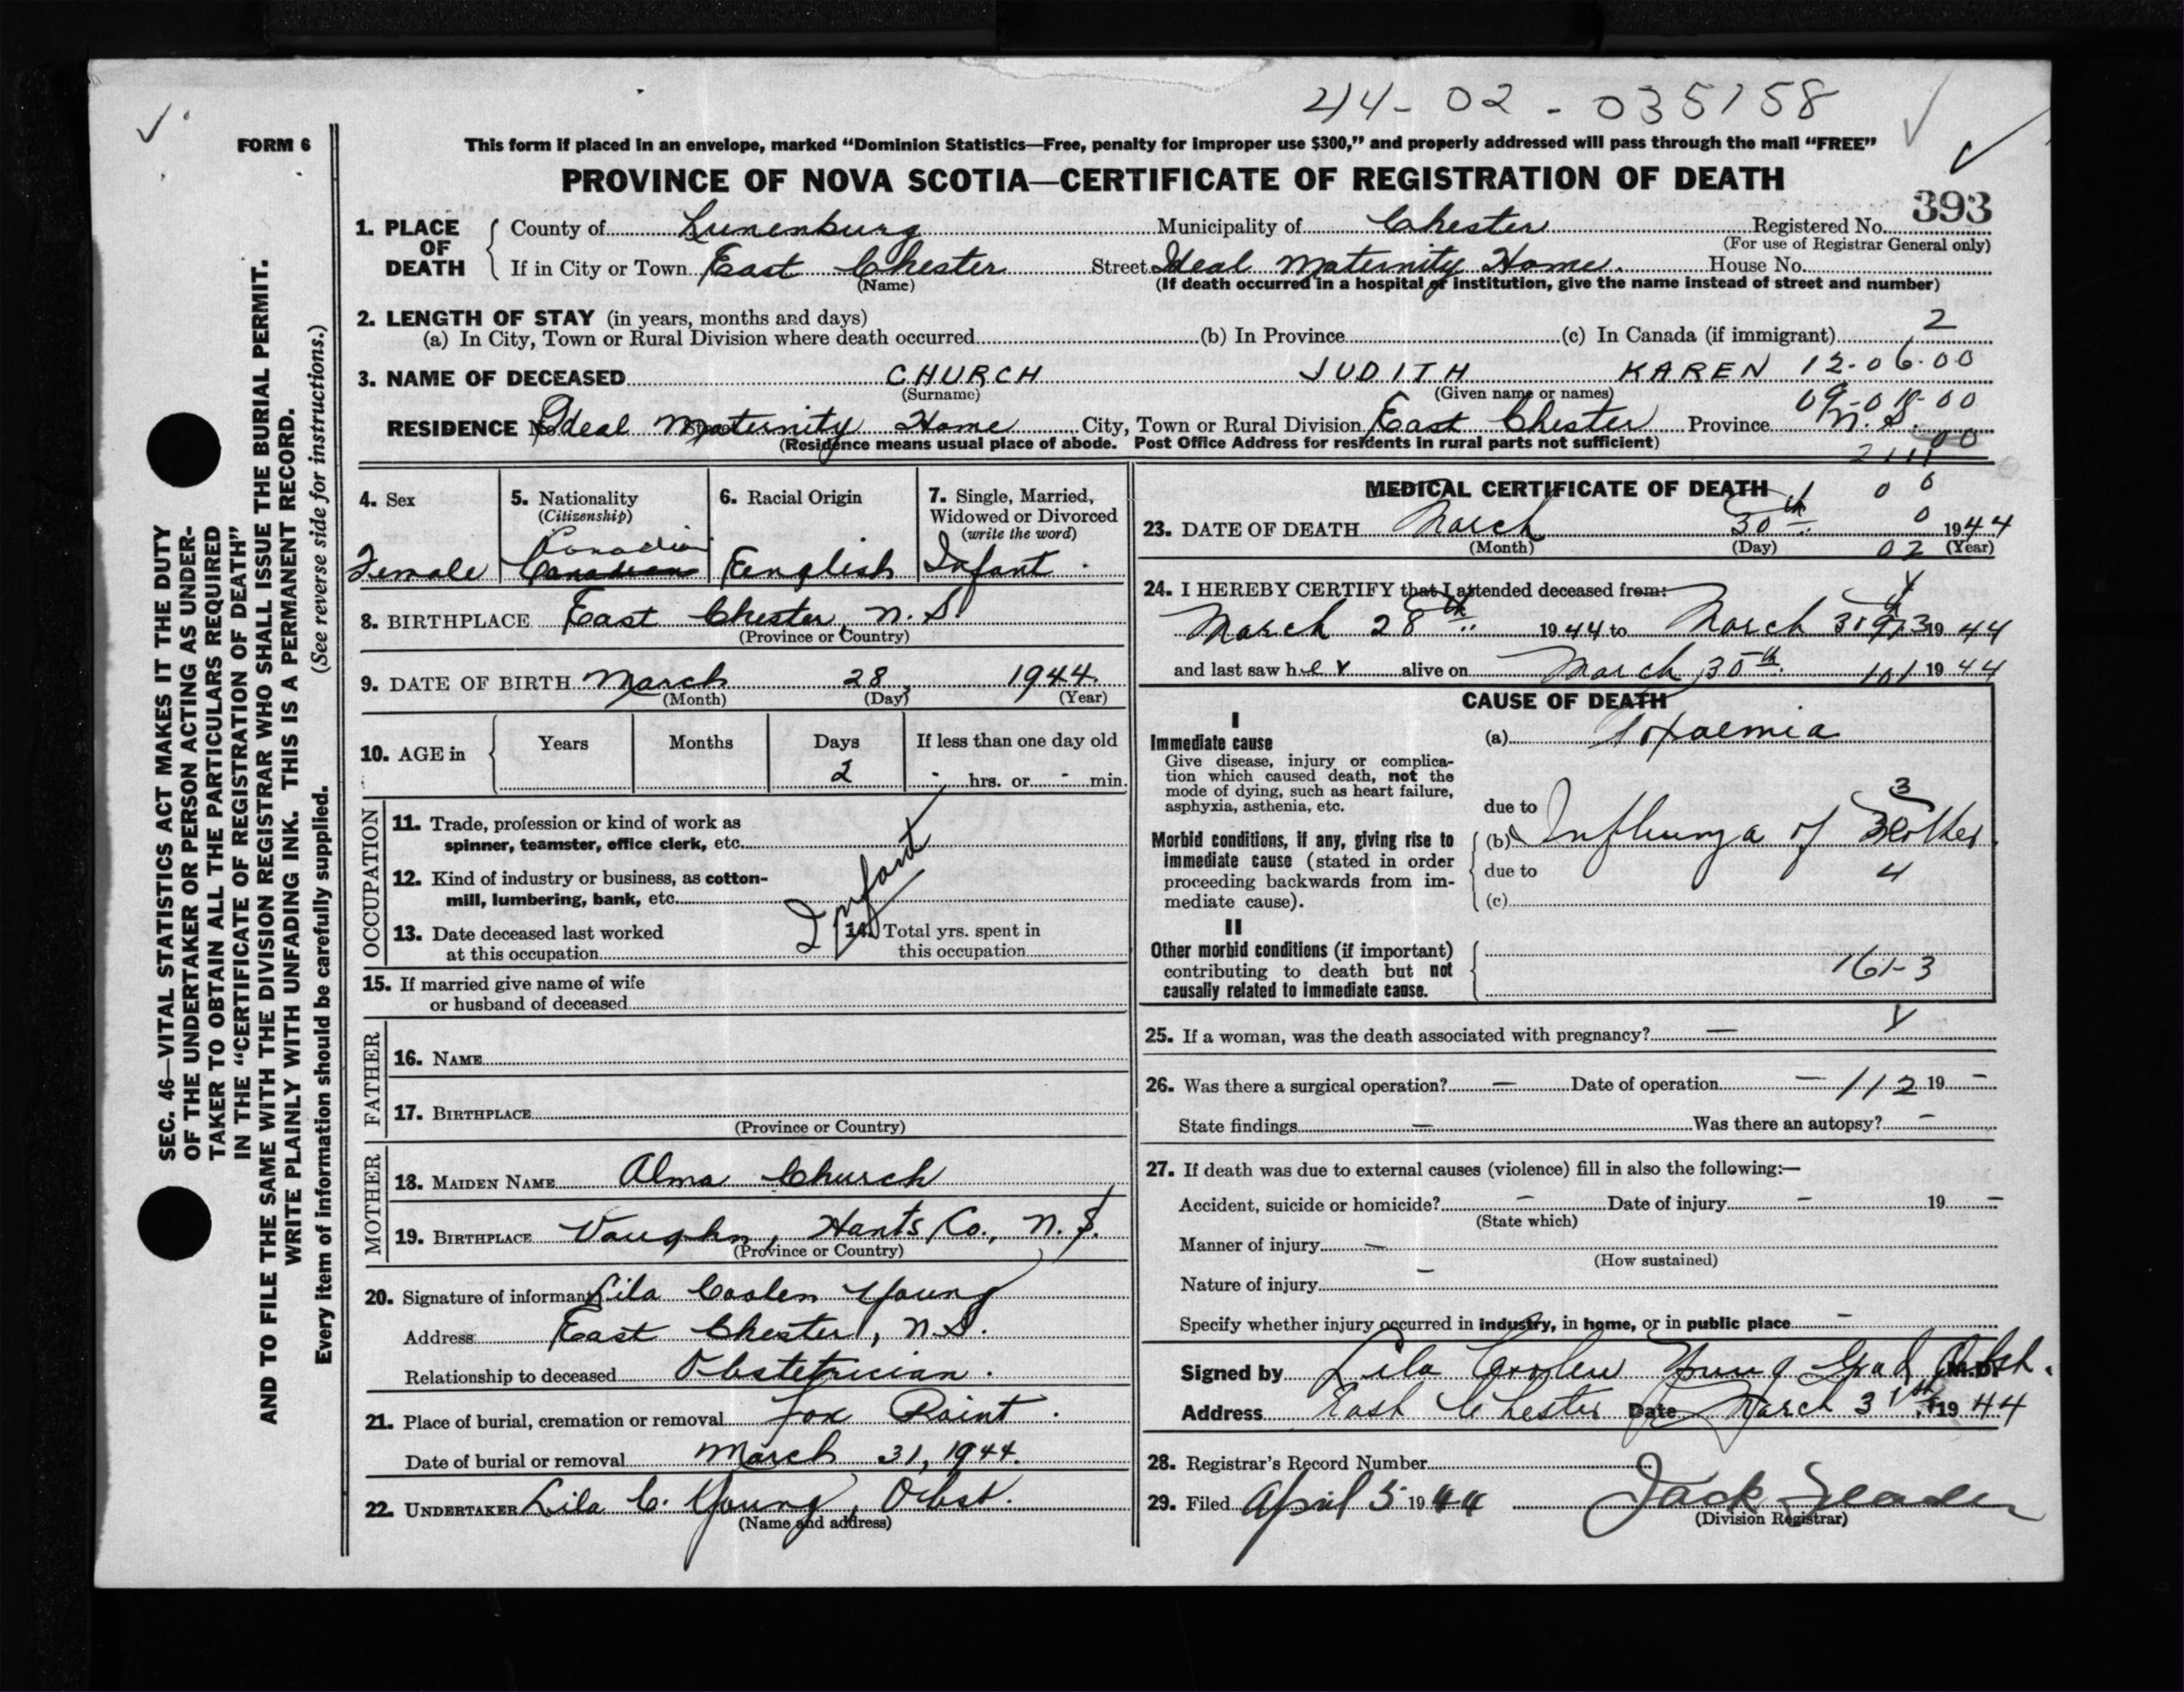 44-02-035158
FORM 6
This form if placed in an envelope, marked “Dominion Statistics—Free, penalty for improper use $300,” and properly addressed will pass through the mail “FREE”
PROVINCE OF NOVA SCOTIA—CERTIFICATE OF REGISTRATION OF DEATH
393
1. PLACE OF DEATH { County of Lunenburg Municipality of Chester Registered No.
(For use of Registrar General only)
If in City or Town East Chester Street Ideal Maternity Home. House No.
(Name) (If death occurred in a hospital or institution, give the name instead of street and number)
2. LENGTH OF STAY (in years, months and days)
(a) In City, Town or Rural Division where death occurred (b) In Province (c) In Canada (if immigrant) 2
3. NAME OF DECEASED CHURCH JUDITH KAREN 12-06-00
(Surname) (Given name or names)
RESIDENCE No. Ideal Maternity Home City, Town or Rural Division East Chester Province N.S.
(Residence means usual place of abode. Post Office Address for residents in rural parts not sufficient)
4. Sex
Female
5. Nationality
(Citizenship)
Canadian
Canadian
6. Racial Origin
English
7. Single, Married,
Widowed or Divorced
(write the word)
Infant
8. BIRTHPLACE East Chester, N.S.
(Province or Country)
9. DATE OF BIRTH March 28, 1944.
(Month) (Day) (Year)
10. AGE in { Years Months Days If less than one day old
2 - hrs. or - min.
OCCUPATION
11. Trade, profession or kind of work as
spinner, teamster, office clerk, etc.
12. Kind of industry or business, as cotton-
mill, lumbering, bank, etc.
Infant
13. Date deceased last worked
at this occupation
14. Total yrs. spent in
this occupation
15. If married give name of wife
or husband of deceased
FATHER
16. NAME
17. BIRTHPLACE
(Province or Country)
MOTHER
18. MAIDEN NAME Alma Church
19. BIRTHPLACE Vaughn, Hants Co., N.S.
(Province or Country)
20. Signature of informant Lila Coolen Young
Address East Chester, N.S.
Relationship to deceased Obstetrician.
21. Place of burial, cremation or removal Fox Point.
Date of burial or removal March 31, 1944.
22. UNDERTAKER Lila C. Young, Obst.
(Name and address)
MEDICAL CERTIFICATE OF DEATH
23. DATE OF DEATH March 30th 1944
(Month) (Day) (Year)
02
24. I HEREBY CERTIFY that I attended deceased from:
March 28th 1944 to March 1944
and last saw her alive on March 30th 101 1944
CAUSE OF DEATH
I
Immediate cause
Give disease, injury or complica-
tion which caused death, not the
mode of dying, such as heart failure,
asphyxia, asthenia, etc.
(a) Toxaemia
due to
Morbid conditions, if any, giving rise to
immediate cause (stated in order
proceeding backwards from im-
mediate cause).
3
(b) Influenza of Mother.
due to 4
(c)
II
Other morbid conditions (if important)
contributing to death but not
causally related to immediate cause.
161-3
25. If a woman, was the death associated with pregnancy? —
26. Was there a surgical operation? — Date of operation — 112 19 —
State findings — Was there an autopsy? —
27. If death was due to external causes (violence) fill in also the following:—
Accident, suicide or homicide? — Date of injury — 19 —
(State which)
Manner of injury —
(How sustained)
Nature of injury —
Specify whether injury occurred in industry, in home, or in public place —
Signed by Lila Coolen Young Grad Obst. M.D.
Address East Chester Date March 31st 1944
28. Registrar's Record Number
29. Filed April 5 1944 Jack
(Division Registrar)
SEC. 46—VITAL STATISTICS ACT MAKES IT THE DUTY
OF THE UNDERTAKER OR PERSON ACTING AS UNDER-
TAKER TO OBTAIN ALL THE PARTICULARS REQUIRED
IN THE “CERTIFICATE OF REGISTRATION OF DEATH”
AND TO FILE THE SAME WITH THE DIVISION REGISTRAR WHO SHALL ISSUE THE BURIAL PERMIT.
WRITE PLAINLY WITH UNFADING INK. THIS IS A PERMANENT RECORD.
Every item of information should be carefully supplied. (See reverse side for instructions.)